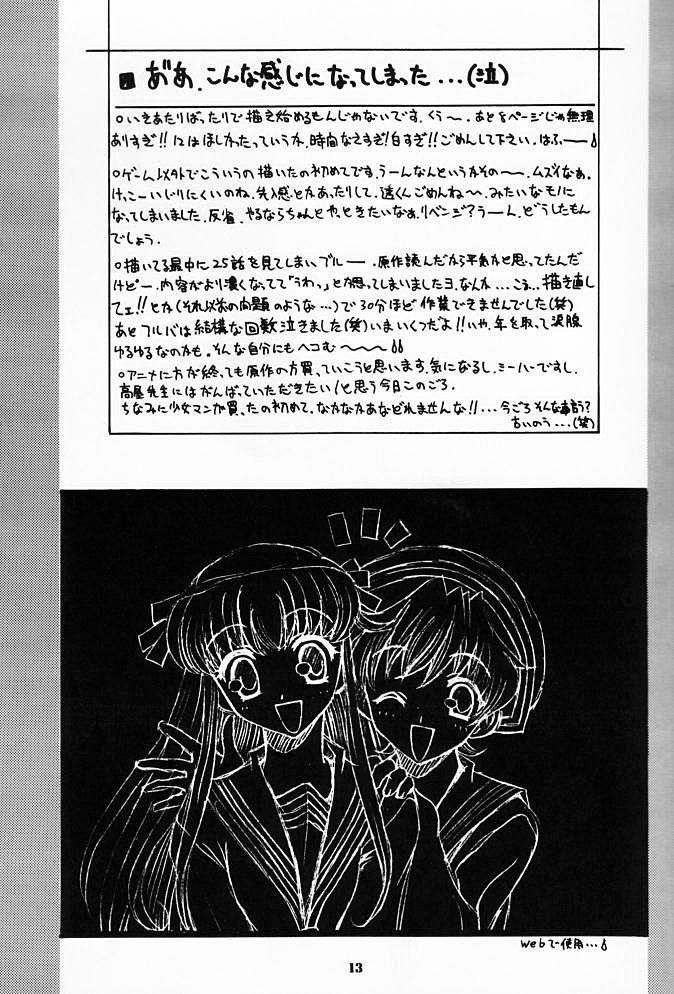 おあ、こんな感じになってしまった...(泣)
○いきあたりばったりで描き始めるもんじゃないです。くぅ〜。あと8ページじゃ無理
ありすぎ!!12はほしかったっていうか、時間なさすぎ!白すぎ!!ごめんして下さい。はふ——
○ゲーム以外でこういうの描いたの初めてです。うーんなんというかその〜。ムズイなぁ。
けっこーいじりにくいのね。先入感とかあったりして。透くんごめんね〜。みたいなモノに
なってしまいました。反省。やるならちゃんとやっときたいなぁ。リベンジ?うーん。どうしたもん
でしょう。
○描いてる最中に25話を見てしまい、ブルー—。原作読んだから平気かと思ってたんだ
けどー、内容がより濃くなってて「うわっ」とか思ってしまいましたヨ。なんか...こう...描き直し
てェ!!とか(それ以前の問題のような...)で30分ほど作業できませんでした(笑)
あとフルバは結構な回数泣きました(笑)いまいくつだよ!!いや、年を取って涙腺
ゆるゆるなのかも。そんな自分にもヘコむ〜——
○アニメに方が終っても原作の方買っていこうと思います。気になるし。ミーハーですし。
高屋先生にはがんばっていただきたい!と思う今日このごろ。
ちなみに少女マンガ買ったの初めて。なかなかあなどれませんな!!...今ごろそんな事言う?
ちいのう...(笑)
Webで使用...
13